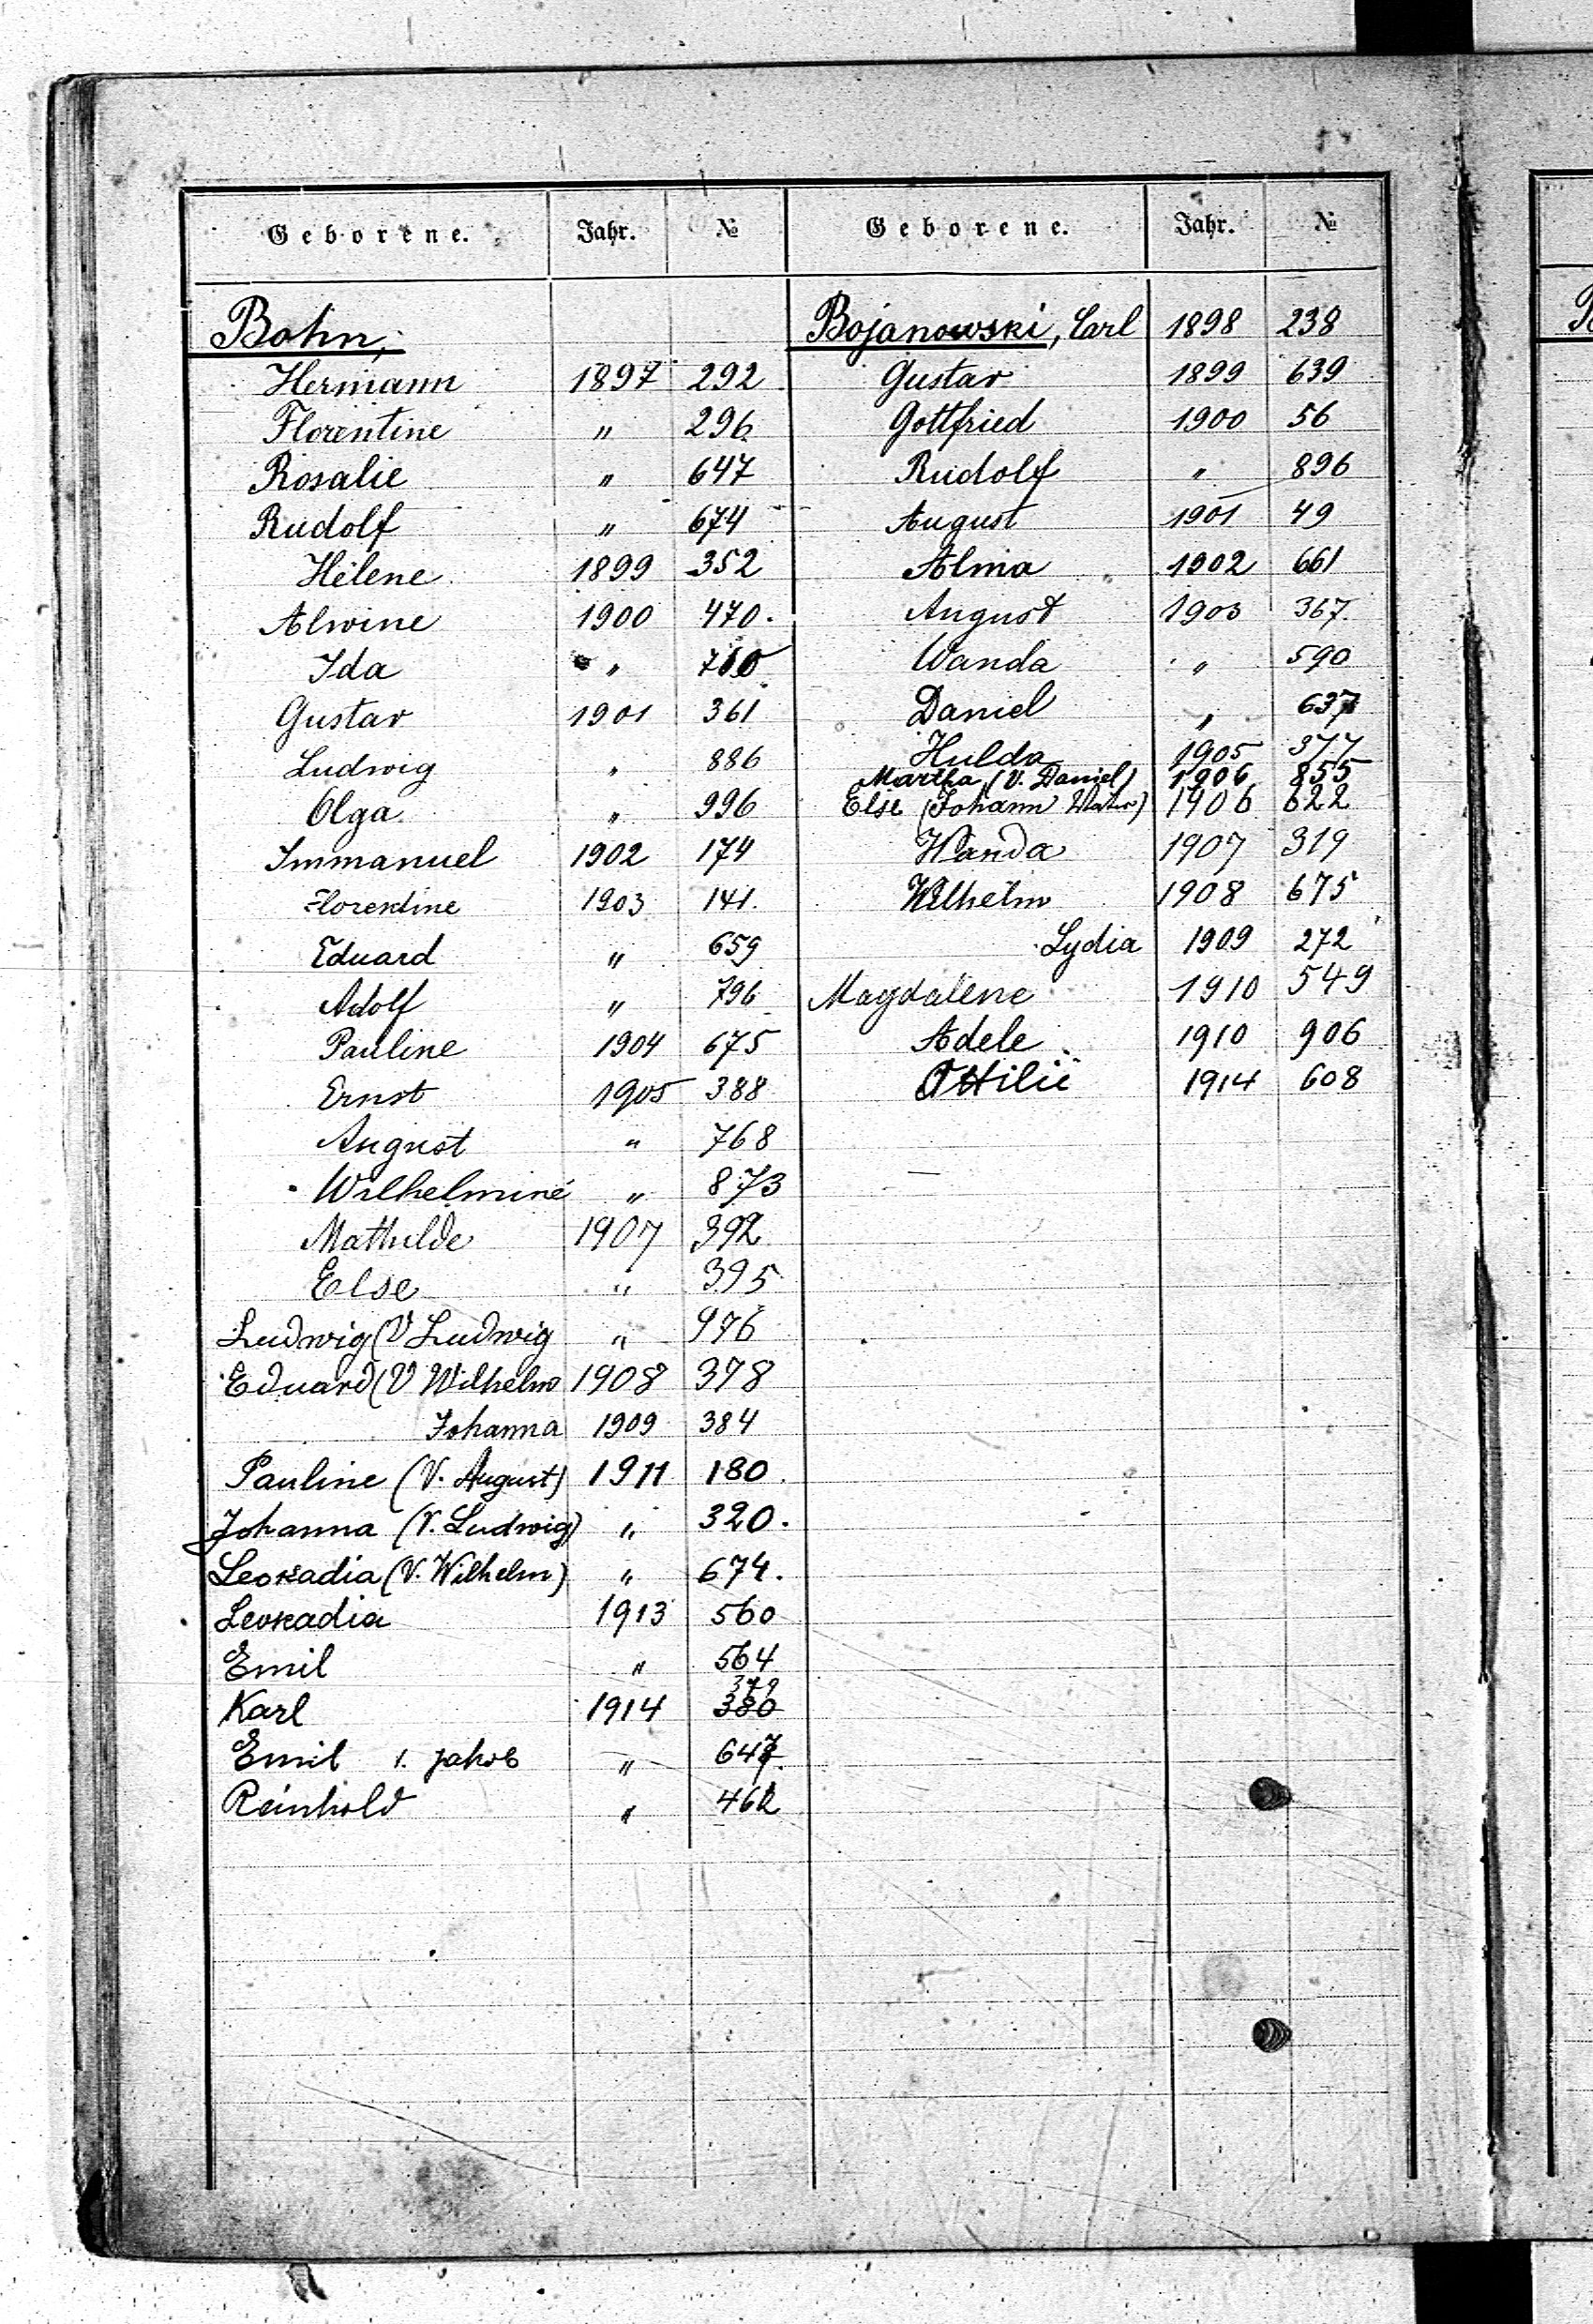 Geborene. Jahr. №
Bohn,
Hermann 1897 292
Florentine " 296
Rosalie " 647
Rudolf " 674
Helene 1899 352
Alwine 1900 470.
Ida " 710
Gustav 1901 361
Ludwig " 886
Olga " 996
Immanuel 1902 174
Florentine 1903 141.
Eduard " 659
Adolf " 796
Pauline 1904 675
Ernst 1905 388
August " 768
Wilhelmine " 873
Mathilde 1907 392
Else " 395
Ludwig (V Ludwig " 976
Eduard (V Wilhelm 1908 378
Johanna 1909 384
Pauline (V. August) 1911 180.
Johanna (V. Ludwig) " 320.
Leokadia (V. Wilhelm) " 674.
Leokadia 1913 560
Emil " 564
379
Karl 1914 380
Emil Jakob " 647.
Reinhold " 462
Geborene. Jahr. №
Bojanowski, Carl 1898 238
Gustav 1899 639
Gottfried 1900 56
Rudolf " 896
August 1901 49
Alma 1902 661
August 1903 367.
Wanda " 590
Daniel " 637
Hulda 1905 377
Martha (V. Daniel) 1906 855
Else (Johann Vater) 1906 622
Wanda 1907 319
Wilhelm 1908 675
Lydia 1909 272
Magdalene 1910 549
Adele 1910 906
Ottilie 1914 608